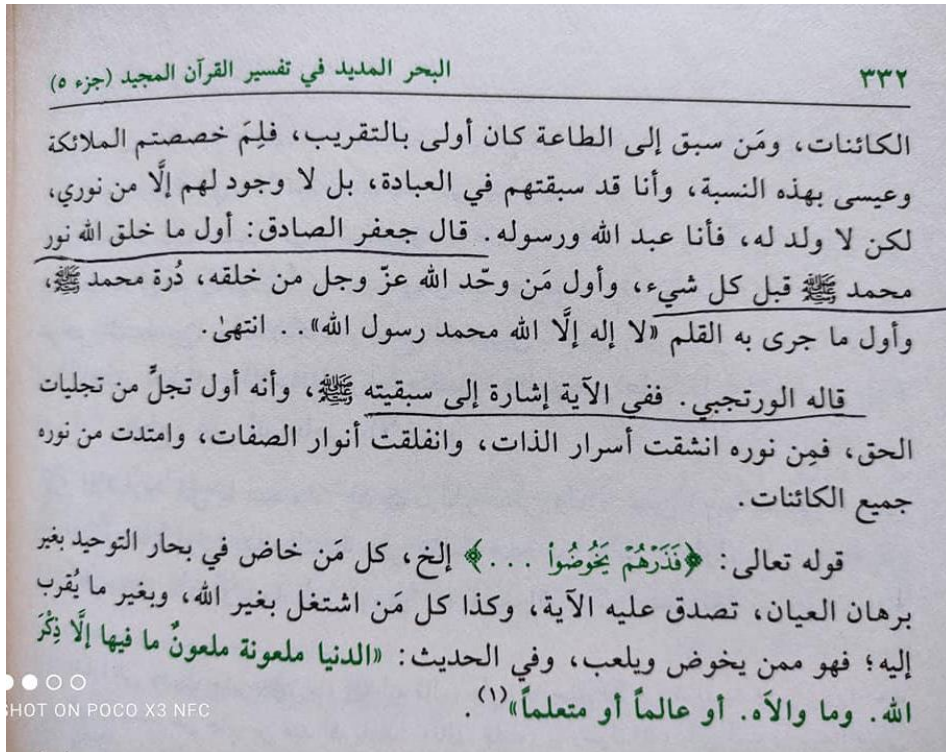 ٣٣٢ البحر المديد في تفسير القرآن المجيد (جزء ٥)
الكائنات، ومَن سبق إلى الطاعة كان أولى بالتقريب، فلِمَ خصصتم الملائكة
وعيسى بهذه النسبة، وأنا قد سبقتهم في العبادة، بل لا وجود لهم إلَّا من نوري،
لكن لا ولد له، فأنا عبد الله ورسوله. قال جعفر الصادق: أول ما خلق الله نور
محمد ﷺ قبل كل شيء، وأول مَن وحّد الله عزّ وجل من خلقه، دُرة محمد ﷺ،
وأول ما جرى به القلم «لا إله إلَّا الله محمد رسول الله».. انتهىٰ.
قاله الورتجبي. ففي الآية إشارة إلى سبقيته ﷺ، وأنه أول تجلٍّ من تجليات
الحق، فمِن نوره انشقت أسرار الذات، وانفلقت أنوار الصفات، وامتدت من نوره
جميع الكائنات.
قوله تعالى: ﴿فَذَرْهُمْ يَخُوضُواْ ...﴾ إلخ، كل مَن خاض في بحار التوحيد بغير
برهان العيان، تصدق عليه الآية، وكذا كل مَن اشتغل بغير الله، وبغير ما يُقرب
إليه؛ فهو ممن يخوض ويلعب، وفي الحديث: «الدنيا ملعونة ملعونٌ ما فيها إلَّا ذِكْرَ
الله. وما والاَه. أو عالماً أو متعلماً»(١).
SHOT ON POCO X3 NFC